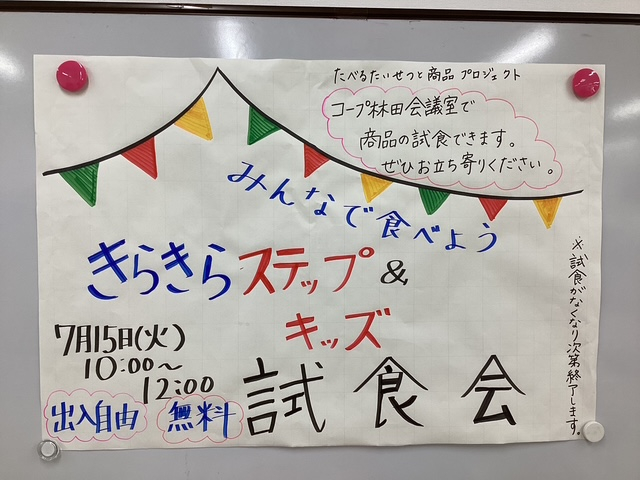 たべるたいせつと商品プロジェクト
コープ林田会議室で
商品の試食できます。
ぜひお立ち寄りください。
みんなで食べよう
きらきらステップ&
キッズ
試食会
7月15日(火)
10:00〜
12:00
出入自由 無料
※試食がなくなり次第終了します。